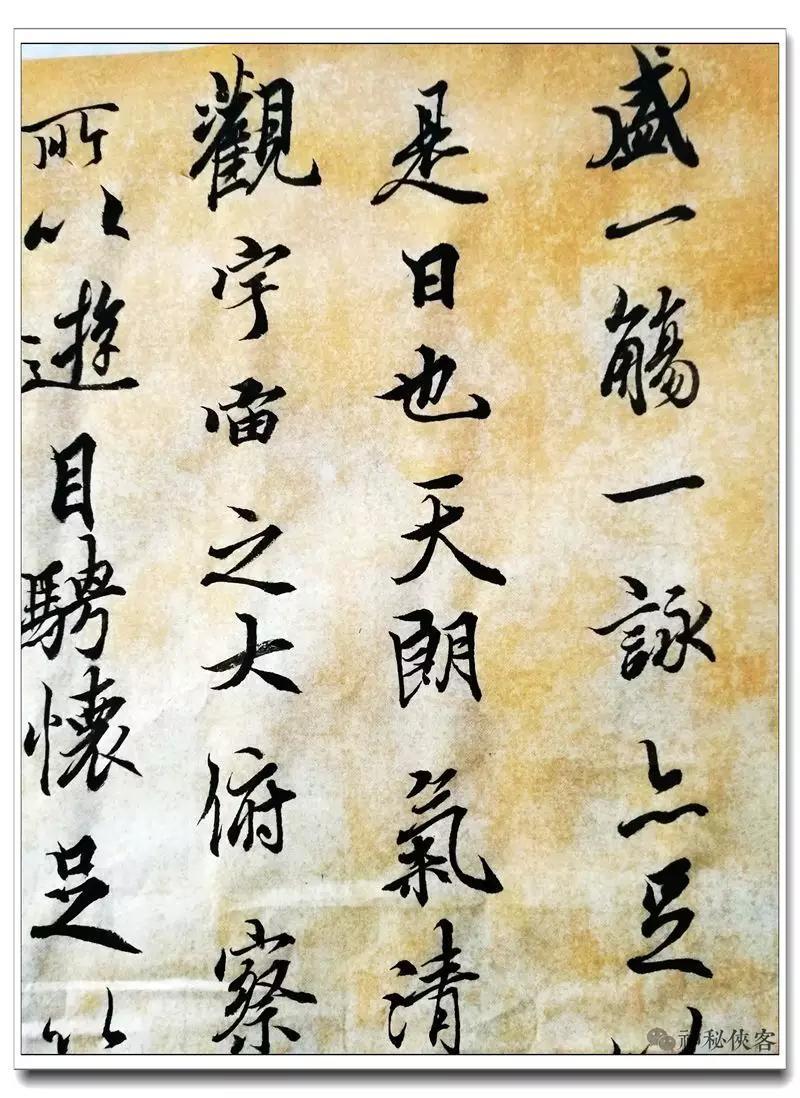 盛一觴一詠亦足以
是日也天朗氣清
觀宇宙之大俯察
所以遊目騁懷足以
神秘俠客